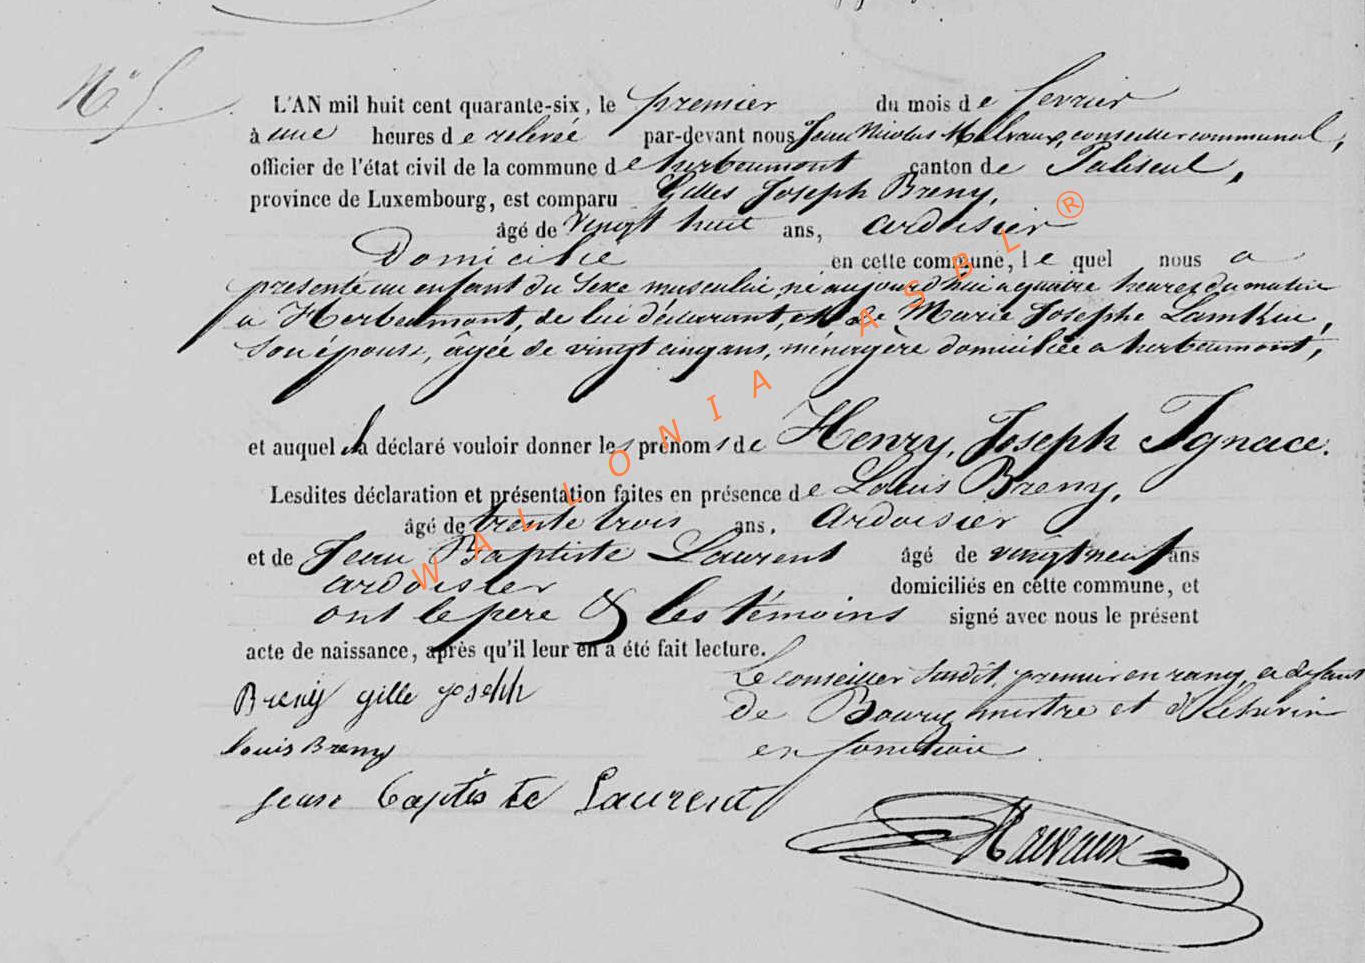 N° 5.
L'AN mil huit cent quarante-six, le premier du mois de fevrier
à une heures de relevée par-devant nous Jean Nicolas Malvaux, conseiller communal,
officier de l'état civil de la commune de herbeumont canton de Paliseul,
province de Luxembourg, est comparu Gilles Joseph Breny,
âgé de vingt huit ans, ardoisier
Domicilié en cette commune, le quel nous a
présenté un enfant du sexe masculin, né aujourd'hui a quatre heures du matin
a Herbeumont, de lui déclarant, et de Marie Josephe
son épouse, âgée de vingt cinq ans, ménagère domiciliée a herbeumont,
et auquel il a déclaré vouloir donner les prénoms de Henry, Joseph Ignace.
Lesdites déclaration et présentation faites en présence de Louis Breny,
âgé de trente trois ans, ardoisier
et de Jean Baptiste Laurent âgé de vingt neuf ans
ardoisier domiciliés en cette commune, et
ont le père & les témoins signé avec nous le présent
acte de naissance, après qu'il leur en a été fait lecture.
Le conseiller susdit, premier en rang, a défaut
Breny gille joseph
de Bourgmestre et d'Echevin
louis Breny
en fonction
jean baptiste Laurent
Malvaux
WALLONIA ASBL ®